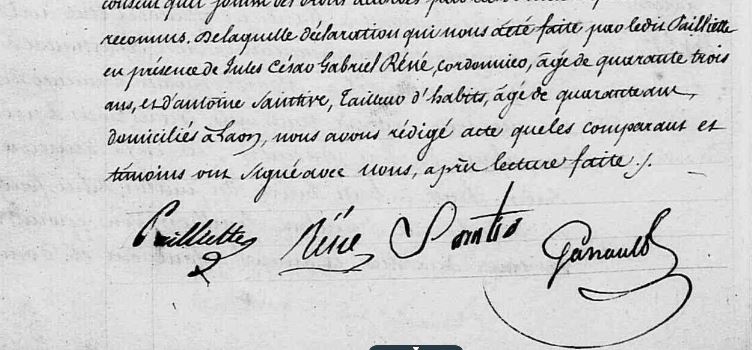 reconnus. De laquelle déclaration qui nous a été faite par ledit Pailliette
en présence de Jules César Gabriel Réné, cordonnier, âgé de quarante trois
ans, et d'antoine Saintive, Tailleur d'habits, âgé de quarante ans,
domiciliés à Laon, nous avons rédigé acte que les comparant et
témoins ont signé avec nous, après lecture faite ./.
Pailliette Réné